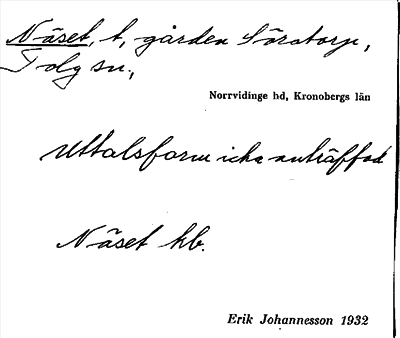 Näset, t, gården Söratorp,
Tolg sn,
Norrvidinge hd, Kronobergs län
Uttalsform icke anträffad
Näset kb.
Erik Johannesson 1932